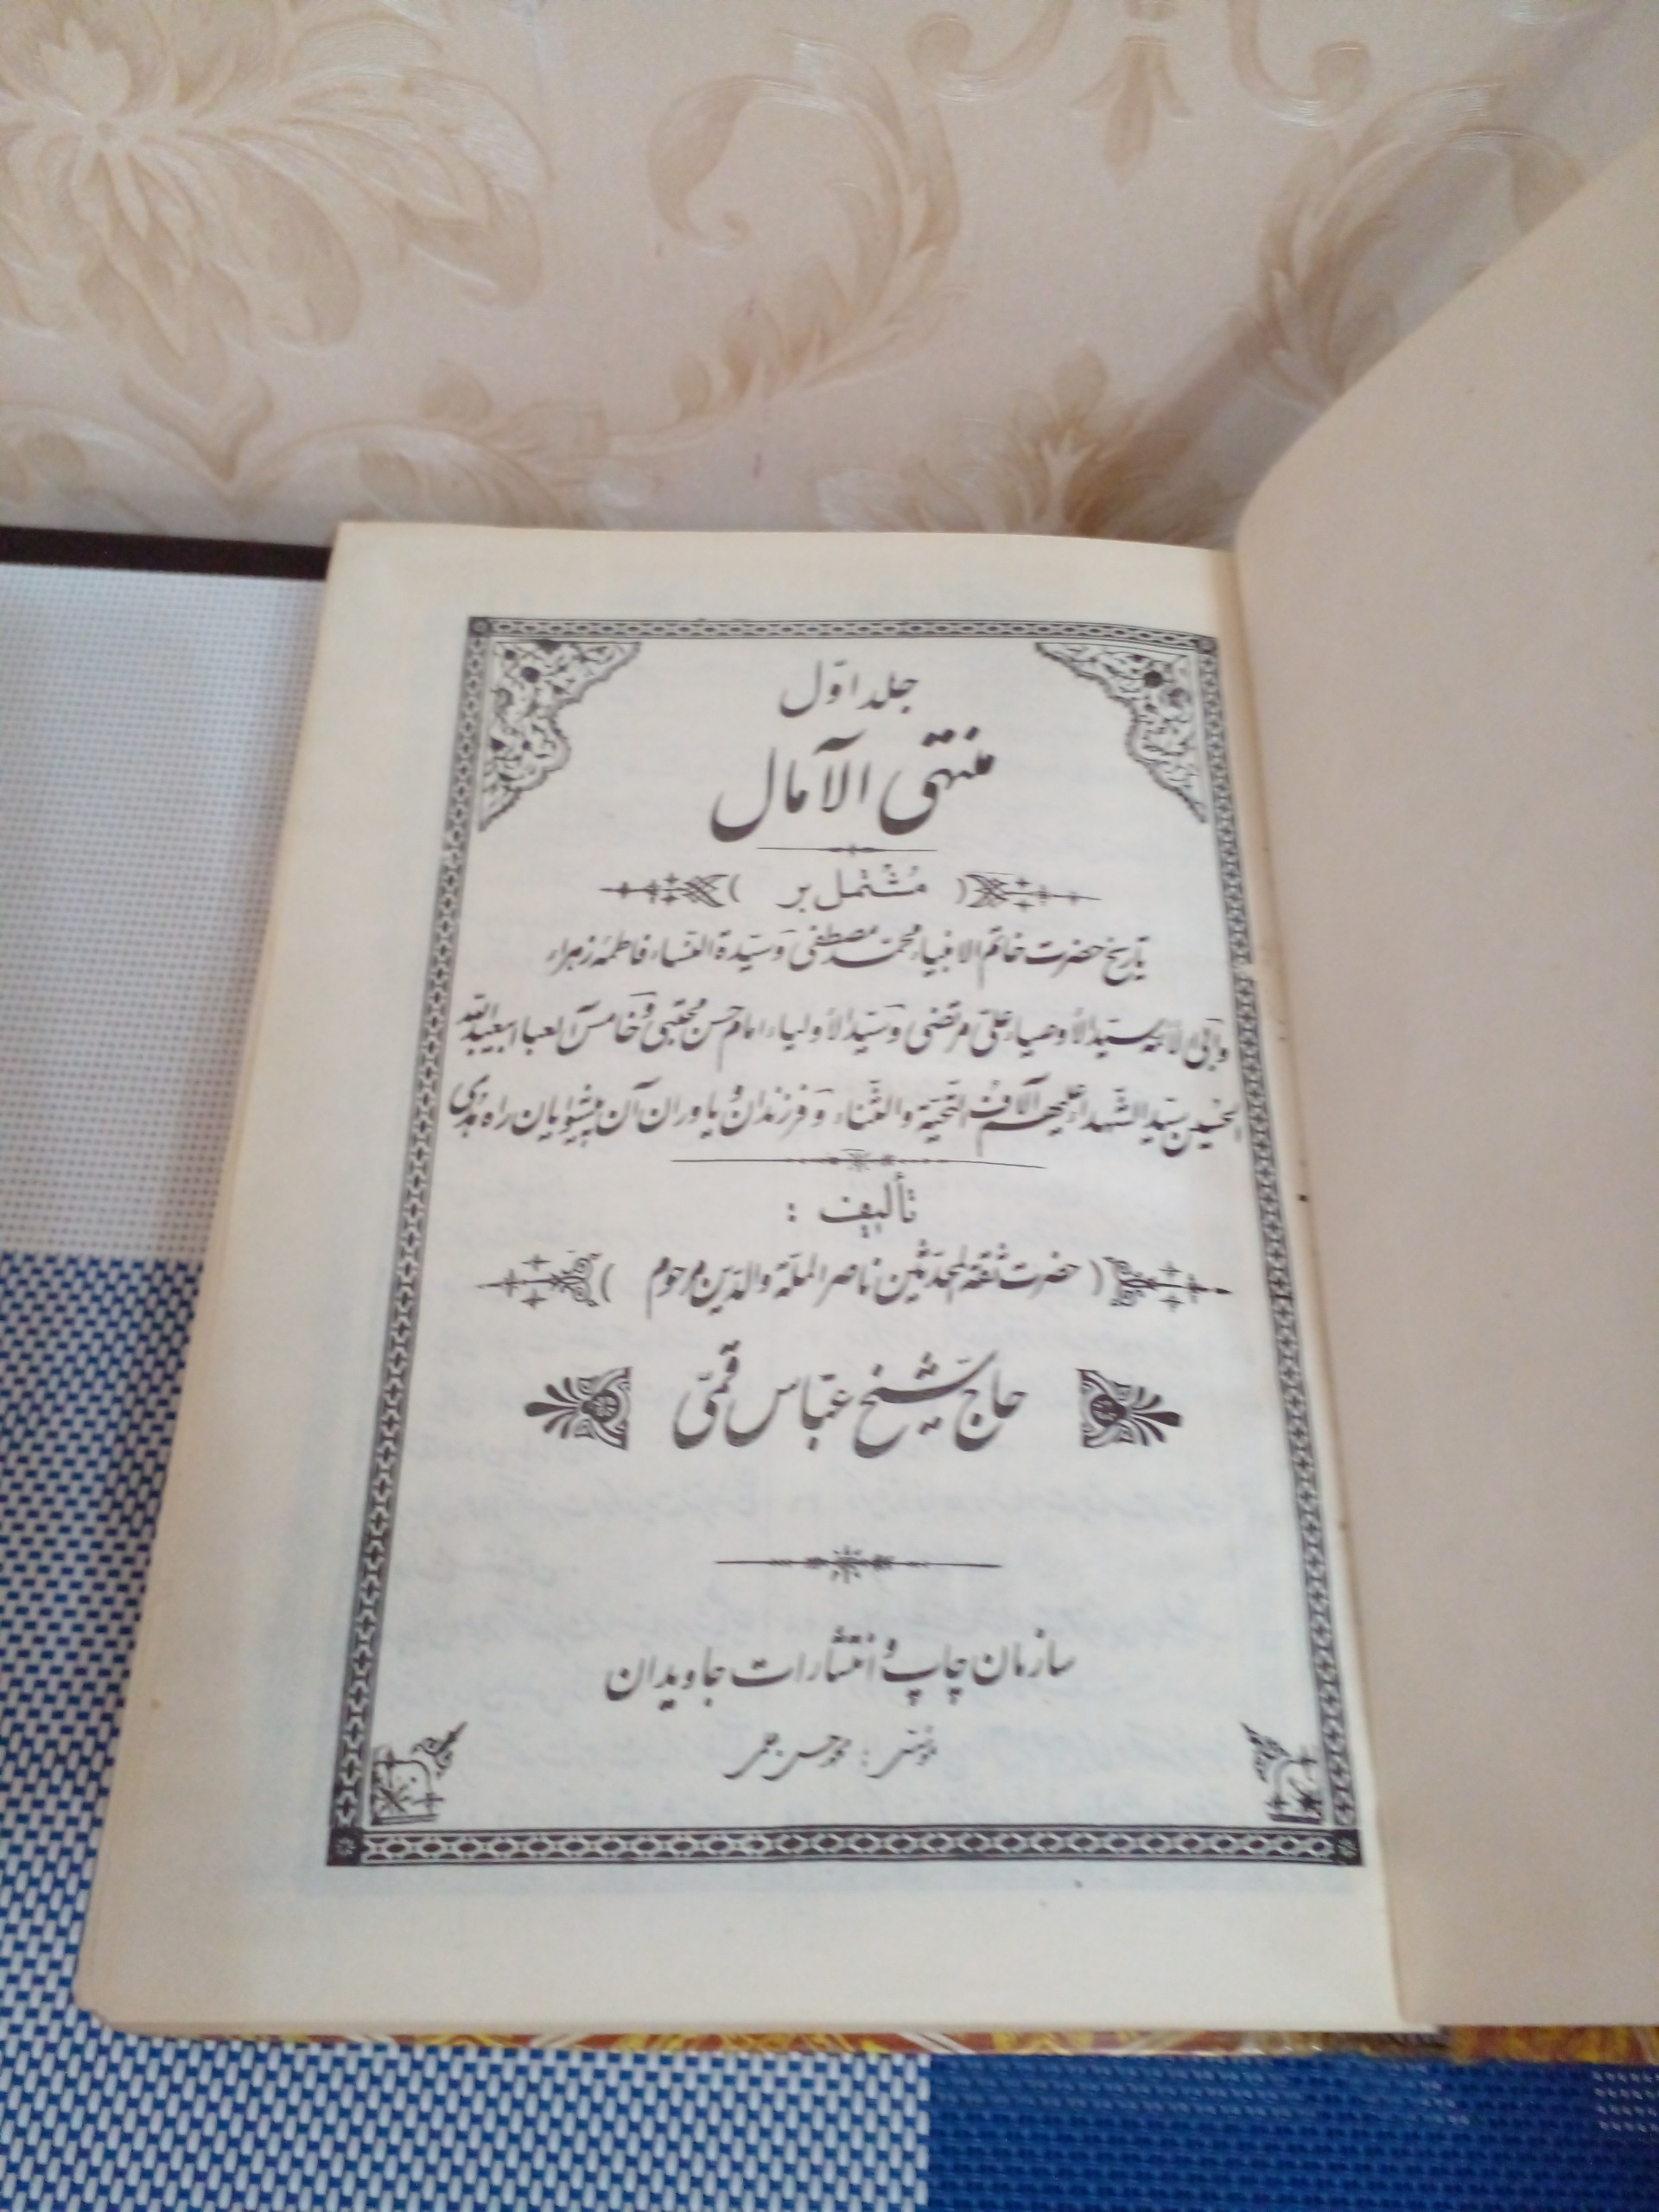 جلد اوّل
منتهی الآمال
( مُشتمل بر )
تاریخ حضرت خاتم الانبیاء محمّد مصطفی وَ سیّدة النّساء فاطمهٔ زهراء
وابی الائمّه سیّد الأوصیاء علیّ مرتضی وَ سیّد الأولیاء امام حسن مجتبی وَ خامس آلعبا ابیعبدالله
الحسین سیّد الشّهداء علیهم آلاف التّحیّة والثّناء وَ فرزندان وُ یاوران آن پیشوایان راه هُدی
تألیف :
( حضرت ثقة المحدّثین ناصر الملّة والدّین مرحوم )
حاج شیخ عبّاس قمّی
سازمان چاپ وُ انتشارات جاویدان
محمد حسن علمی